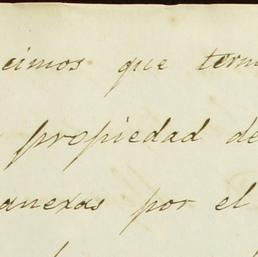 ecimos que term
propiedad de
anexas por el